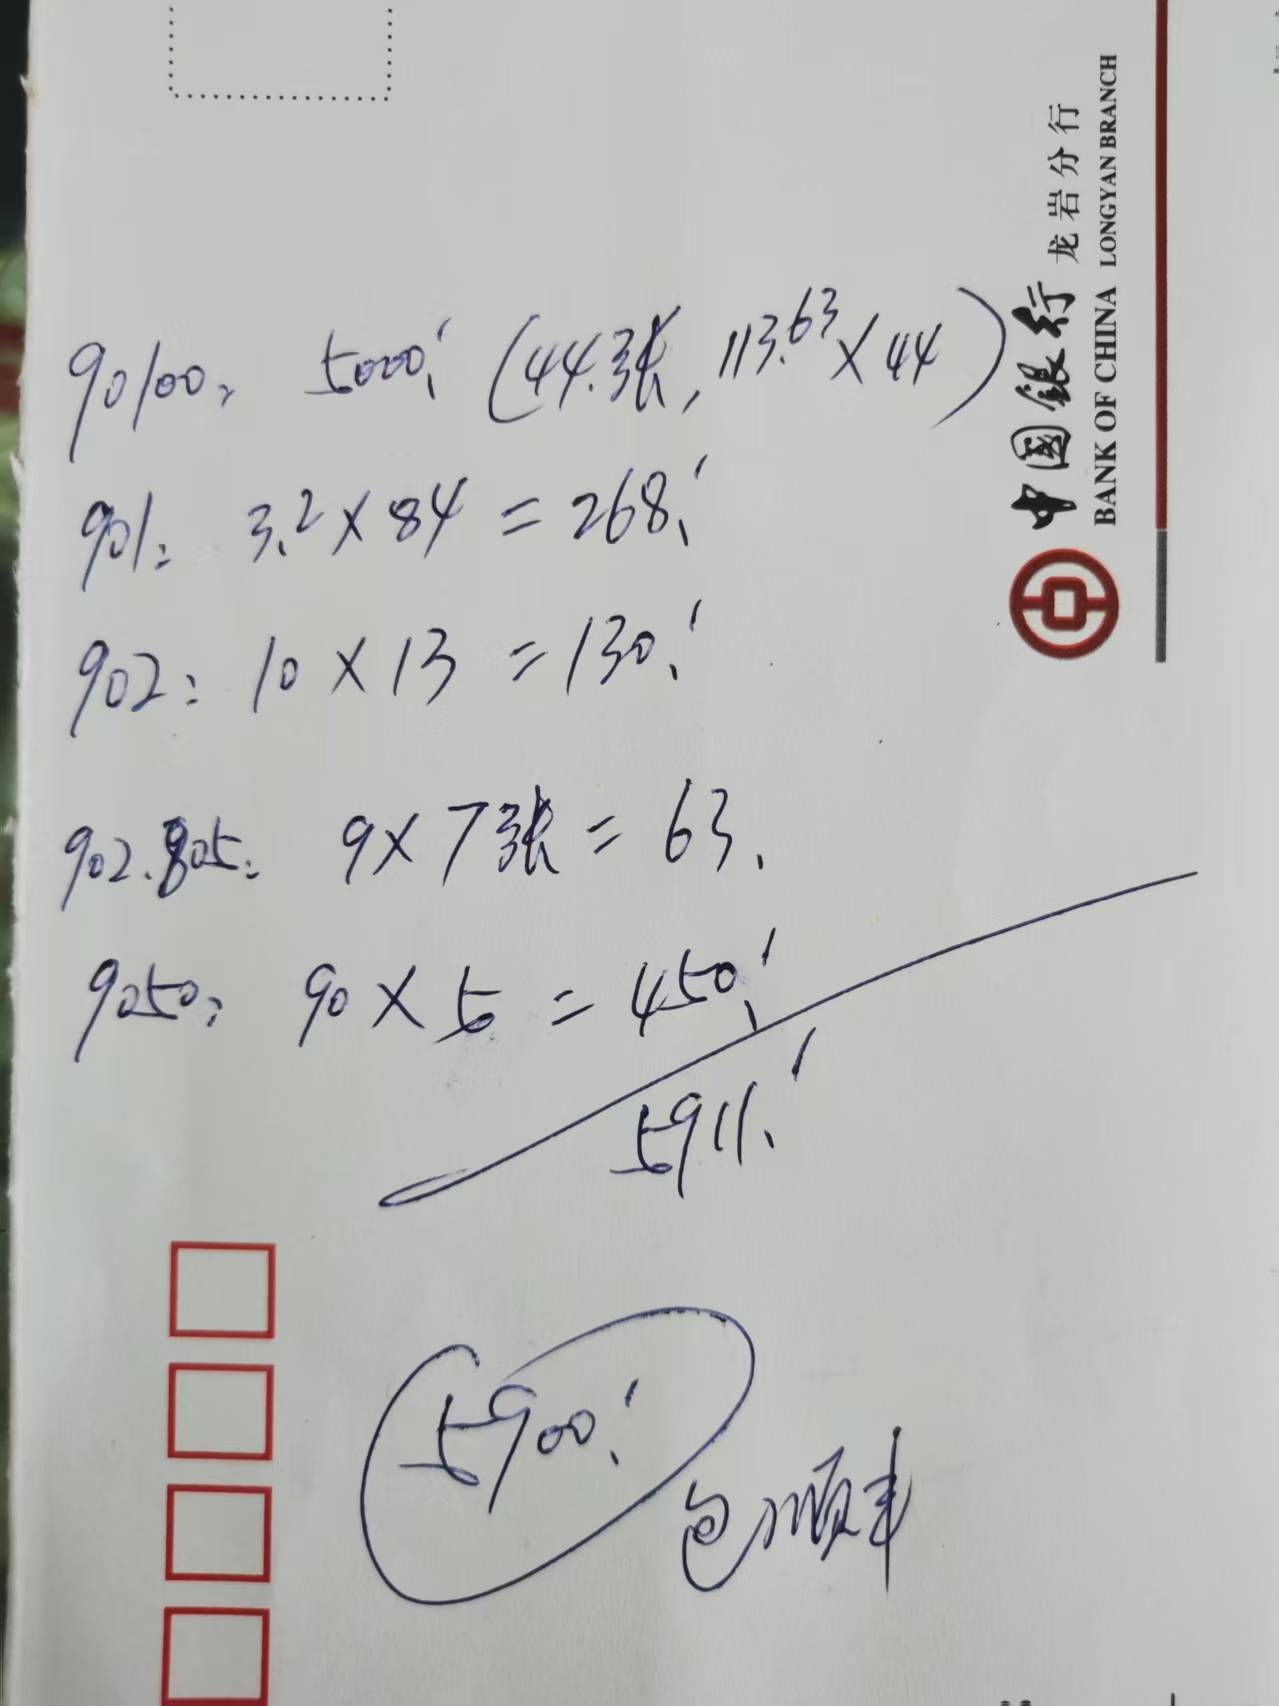 90100: 5000! (44张, 113.63×44)
901: 3.2×84=268!
902: 10×13=130!
902.805: 9×7张=63.
9050: 90×5=450!
5911!
5900!
包顺丰
中国银行 龙岩分行
BANK OF CHINA LONGYAN BRANCH